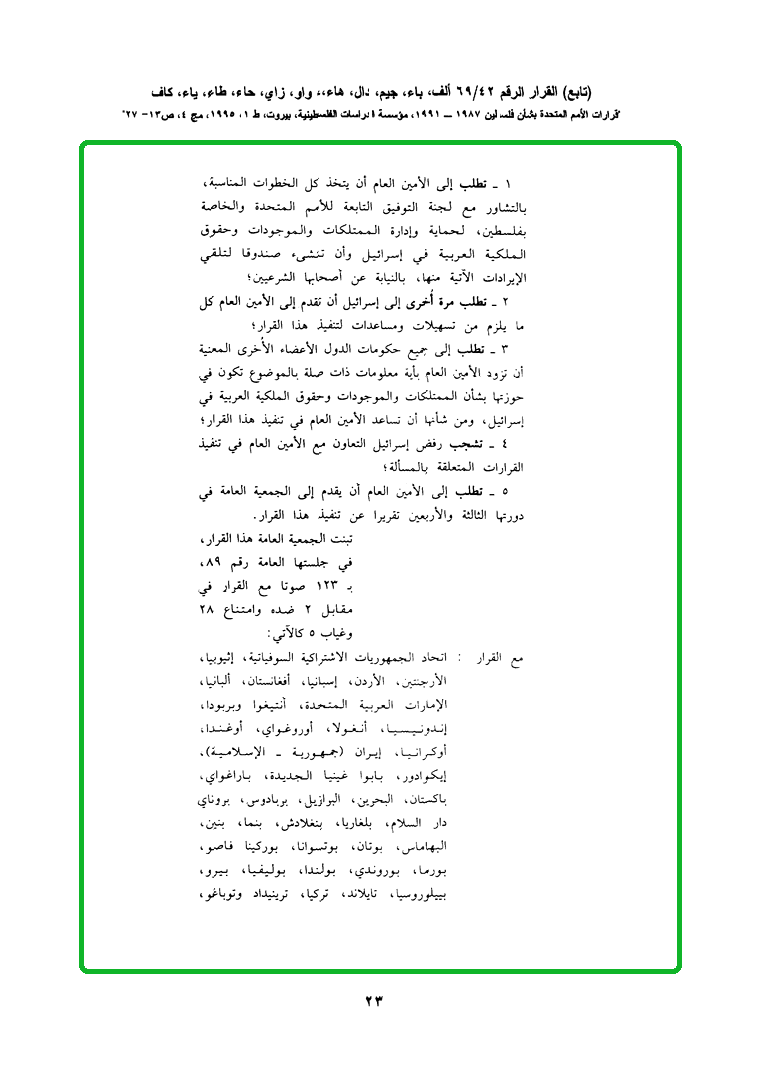 (تابع) القرار الرقم ٦٩/٤٢ ألف، باء، جيم، دال، هاء،، واو، زاي، حاء، طاء، ياء، كاف
"قرارات الأمم المتحدة بشأن فلسطين ١٩٨٧ ــ ١٩٩١، مؤسسة الدراسات الفلسطينية، بيروت، ط ١، ١٩٩٥، مج ٤، ص١٣- ٢٧"
١ ـ تطلب إلى الأمين العام أن يتخذ كل الخطوات المناسبة،
بالتشاور مع لجنة التوفيق التابعة للأمم المتحدة والخاصة
بفلسطين، لحماية وإدارة الممتلكات والموجودات وحقوق
الملكية العربية في إسرائيل وأن تنشىء صندوقا لتلقي
الإيرادات الآتية منها، بالنيابة عن أصحابها الشرعيين؛
٢ ـ تطلب مرة أُخرى إلى إسرائيل أن تقدم إلى الأمين العام كل
ما يلزم من تسهيلات ومساعدات لتنفيذ هذا القرار؛
٣ ـ تطلب إلى جميع حكومات الدول الأعضاء الأُخرى المعنية
أن تزود الأمين العام بأية معلومات ذات صلة بالموضوع تكون في
حوزتها بشأن الممتلكات والموجودات وحقوق الملكية العربية في
إسرائيل، ومن شأنها أن تساعد الأمين العام في تنفيذ هذا القرار؛
٤ ـ تشجب رفض إسرائيل التعاون مع الأمين العام في تنفيذ
القرارات المتعلقة بالمسألة؛
٥ ـ تطلب إلى الأمين العام أن يقدم إلى الجمعية العامة في
دورتها الثالثة والأربعين تقريرا عن تنفيذ هذا القرار.
تبنت الجمعية العامة هذا القرار،
في جلستها العامة رقم ٨٩،
بـ ١٢٣ صوتا مع القرار في
مقابل ٢ ضده وامتناع ٢٨
وغياب ٥ كالآتي:
مع القرار : اتحاد الجمهوريات الاشتراكية السوفياتية، إثيوبيا،
الأرجنتين، الأردن، إسبانيا، أفغانستان، ألبانيا،
الإمارات العربية المتحدة، أنتيغوا وبربودا،
إندونيسيا، أنغولا، أوروغواي، أوغندا،
أوكرانيا، إيران (جمهورية ـ الإسلامية)،
إيكوادور، بابوا غينيا الجديدة، باراغواي،
باكستان، البحرين، البرازيل، بربادوس، بروناي
دار السلام، بلغاريا، بنغلادش، بنما، بنين،
البهاماس، بوتان، بوتسوانا، بوركينا فاصو،
بورما، بوروندي، بولندا، بوليفيا، بيرو،
بييلوروسيا، تايلاند، تركيا، ترينيداد وتوباغو،
٢٣